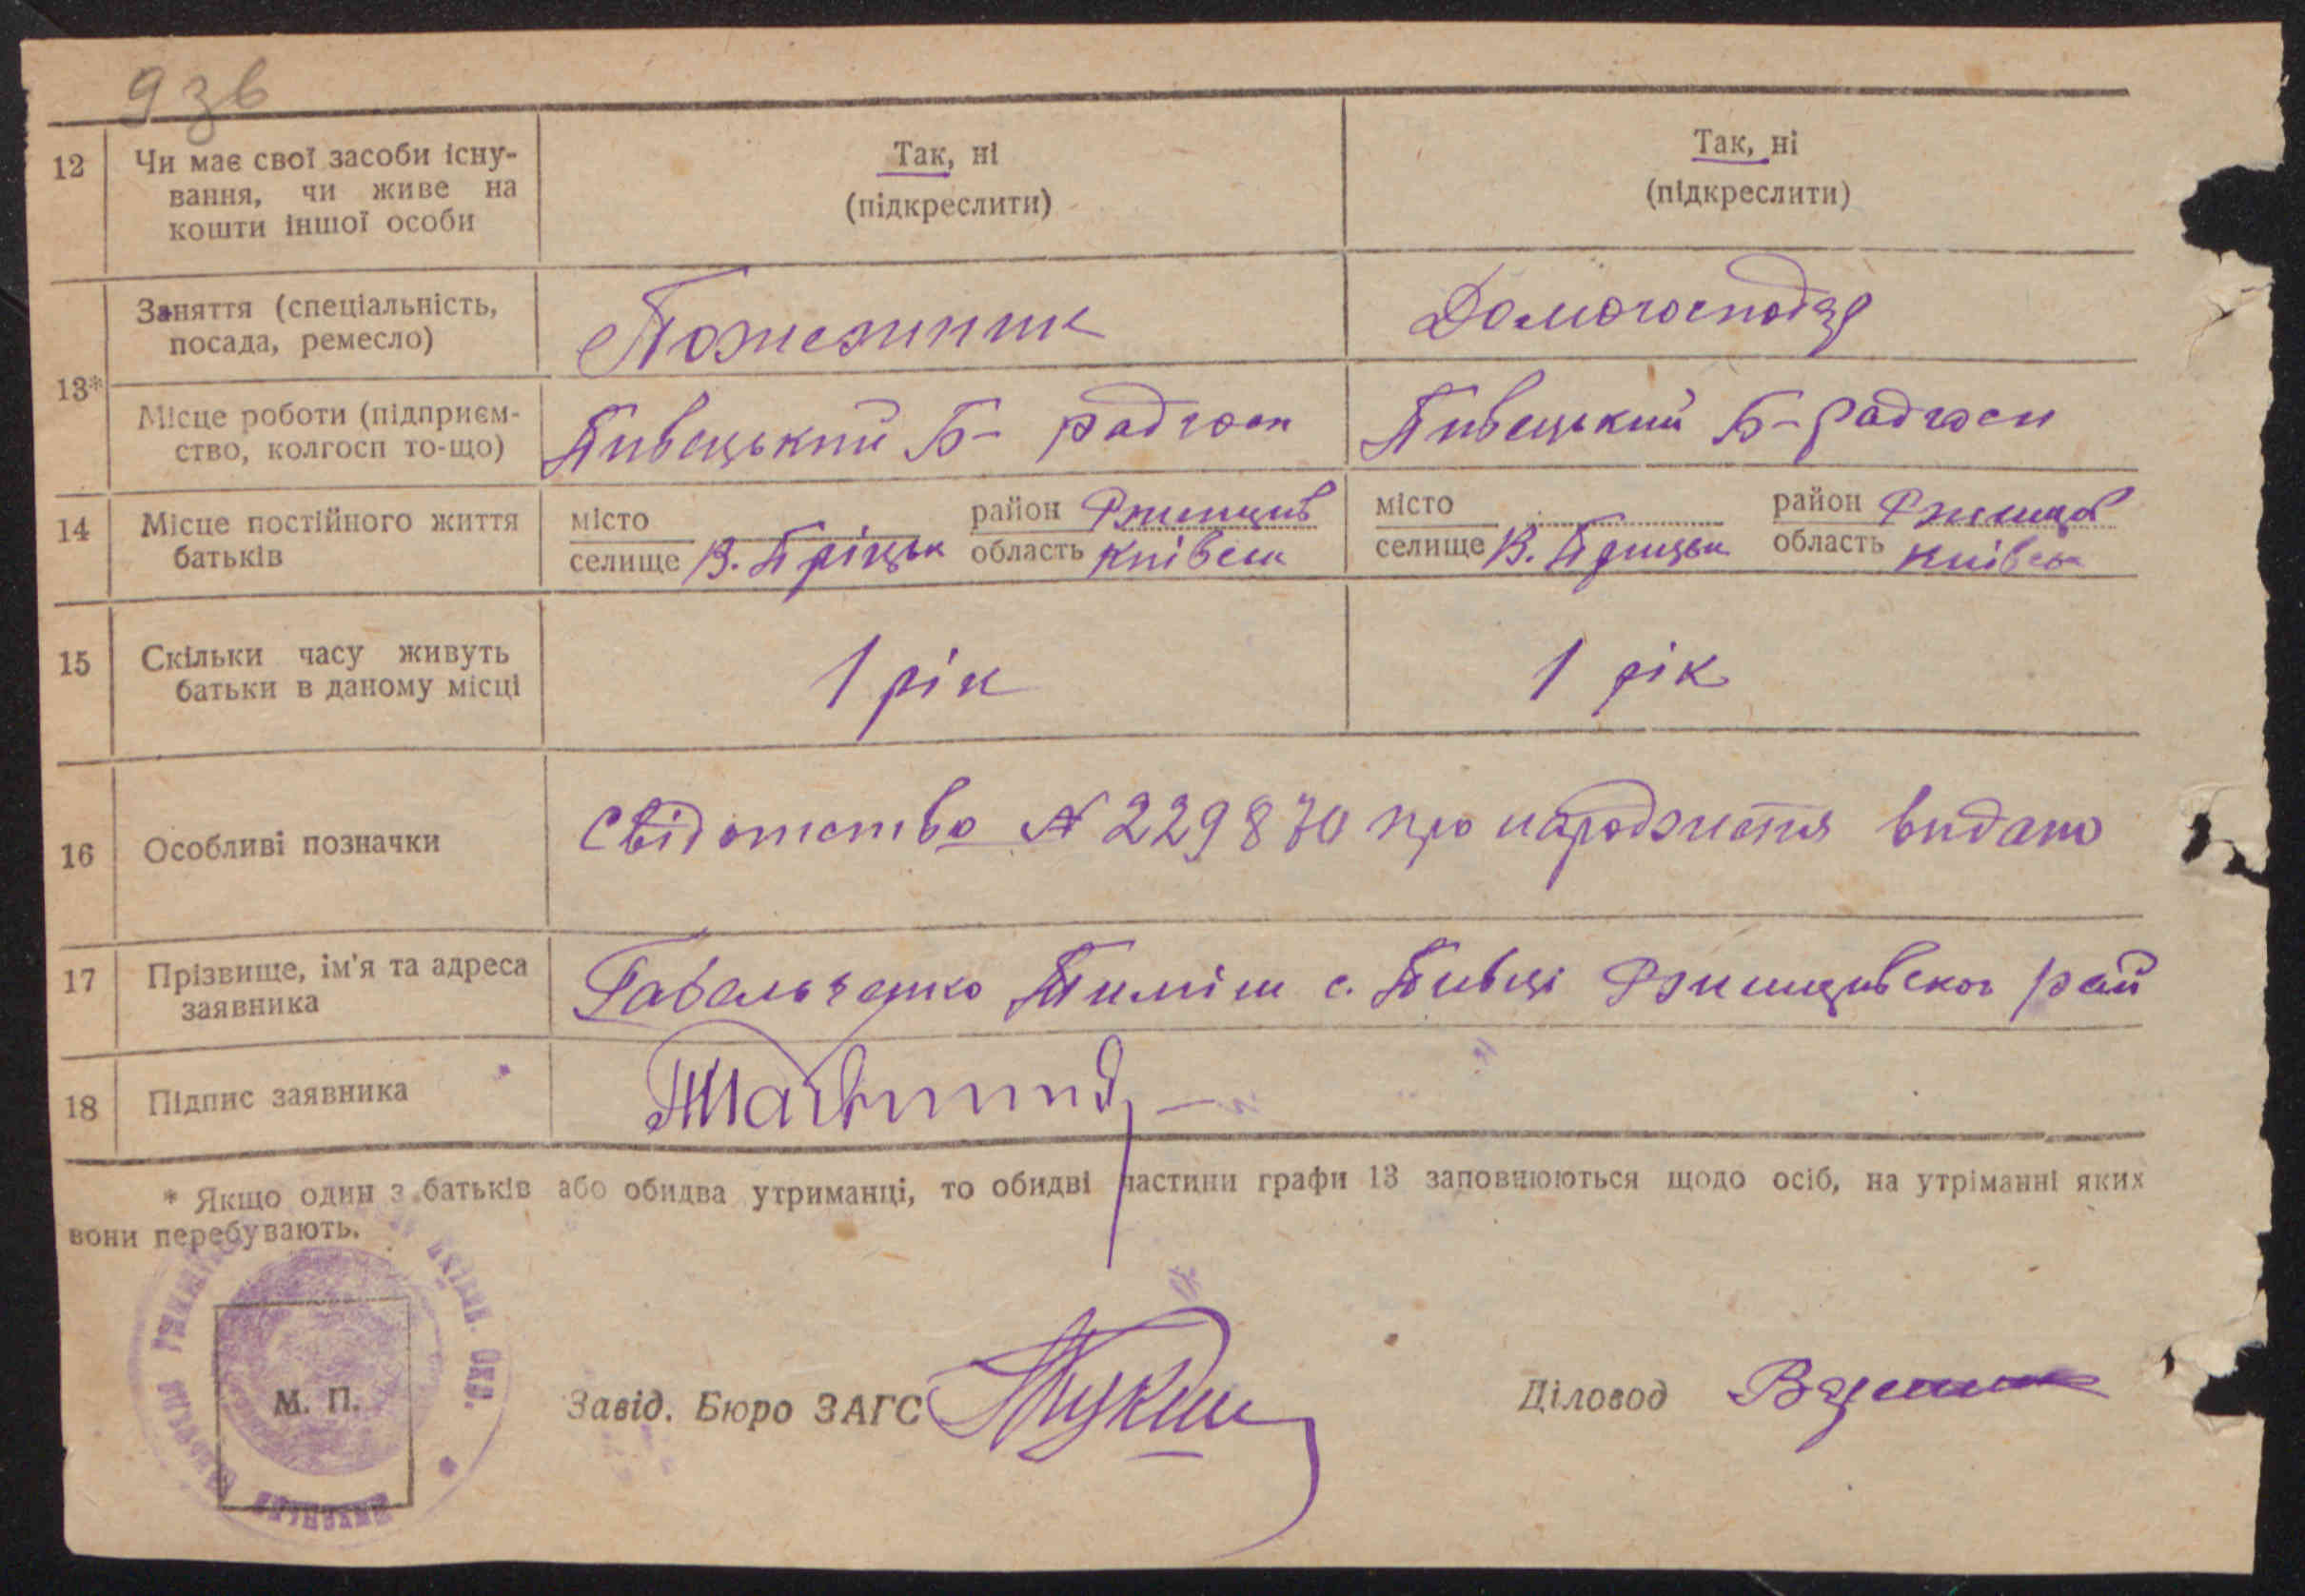 93в
12 Чи має свої засоби існу-
вання, чи живе на
кошти іншої особи
Так, ні
(підкреслити)
Так, ні
(підкреслити)
13*
Заняття (спеціальність,
посада, ремесло)
Пожежник
Домогосподар
Місце роботи (підприєм-
ство, колгосп то-що)
Пивецький Б- радгосп
Пивецький Б- радгосп
14 Місце постійного життя
батьків
місто
селище В.
район Ржищів
область Київськ
місто
селище В.
район Ржищів
область Київськ
15 Скільки часу живуть
батьки в даному місці
1 рік
1 рік
16 Особливі позначки
Свідотство № 229870 про народження видано
17 Прізвище, ім'я та адреса
заявника
Тиміш с. Пивці Ржищивског рай
18 Підпис заявника
* Якщо один з батьків або обидва утриманці, то обидві частини графи 13 заповнюються щодо осіб, на утріманні яких
вони перебувають.
М. П.
Завід. Бюро ЗАГС
Діловод